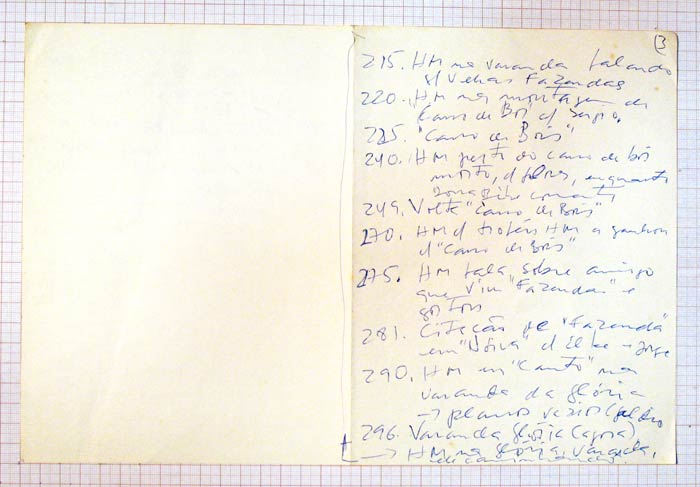 3
215. HM na varanda falando
s/ Velhas Fazendas
220. HM na montagem de
Carro de Boi c/ Sergio.
225. "Carro de Bois"
240. HM perto do carro de boi
morto, enquanto
249. Volta "Carro de Bois"
270. HM c/ troféus HM q ganhou
c/ "Carro de Bois"
275. HM fala sobre amigo
que viu "Fazendas" e
gostou
281. Citação de "Fazenda"
em "Noiva" d
290. HM em "Canto" na
varanda da Glória
→ planos vazios
296. Varanda Glória (agora)
→ HM na Glória, varanda,